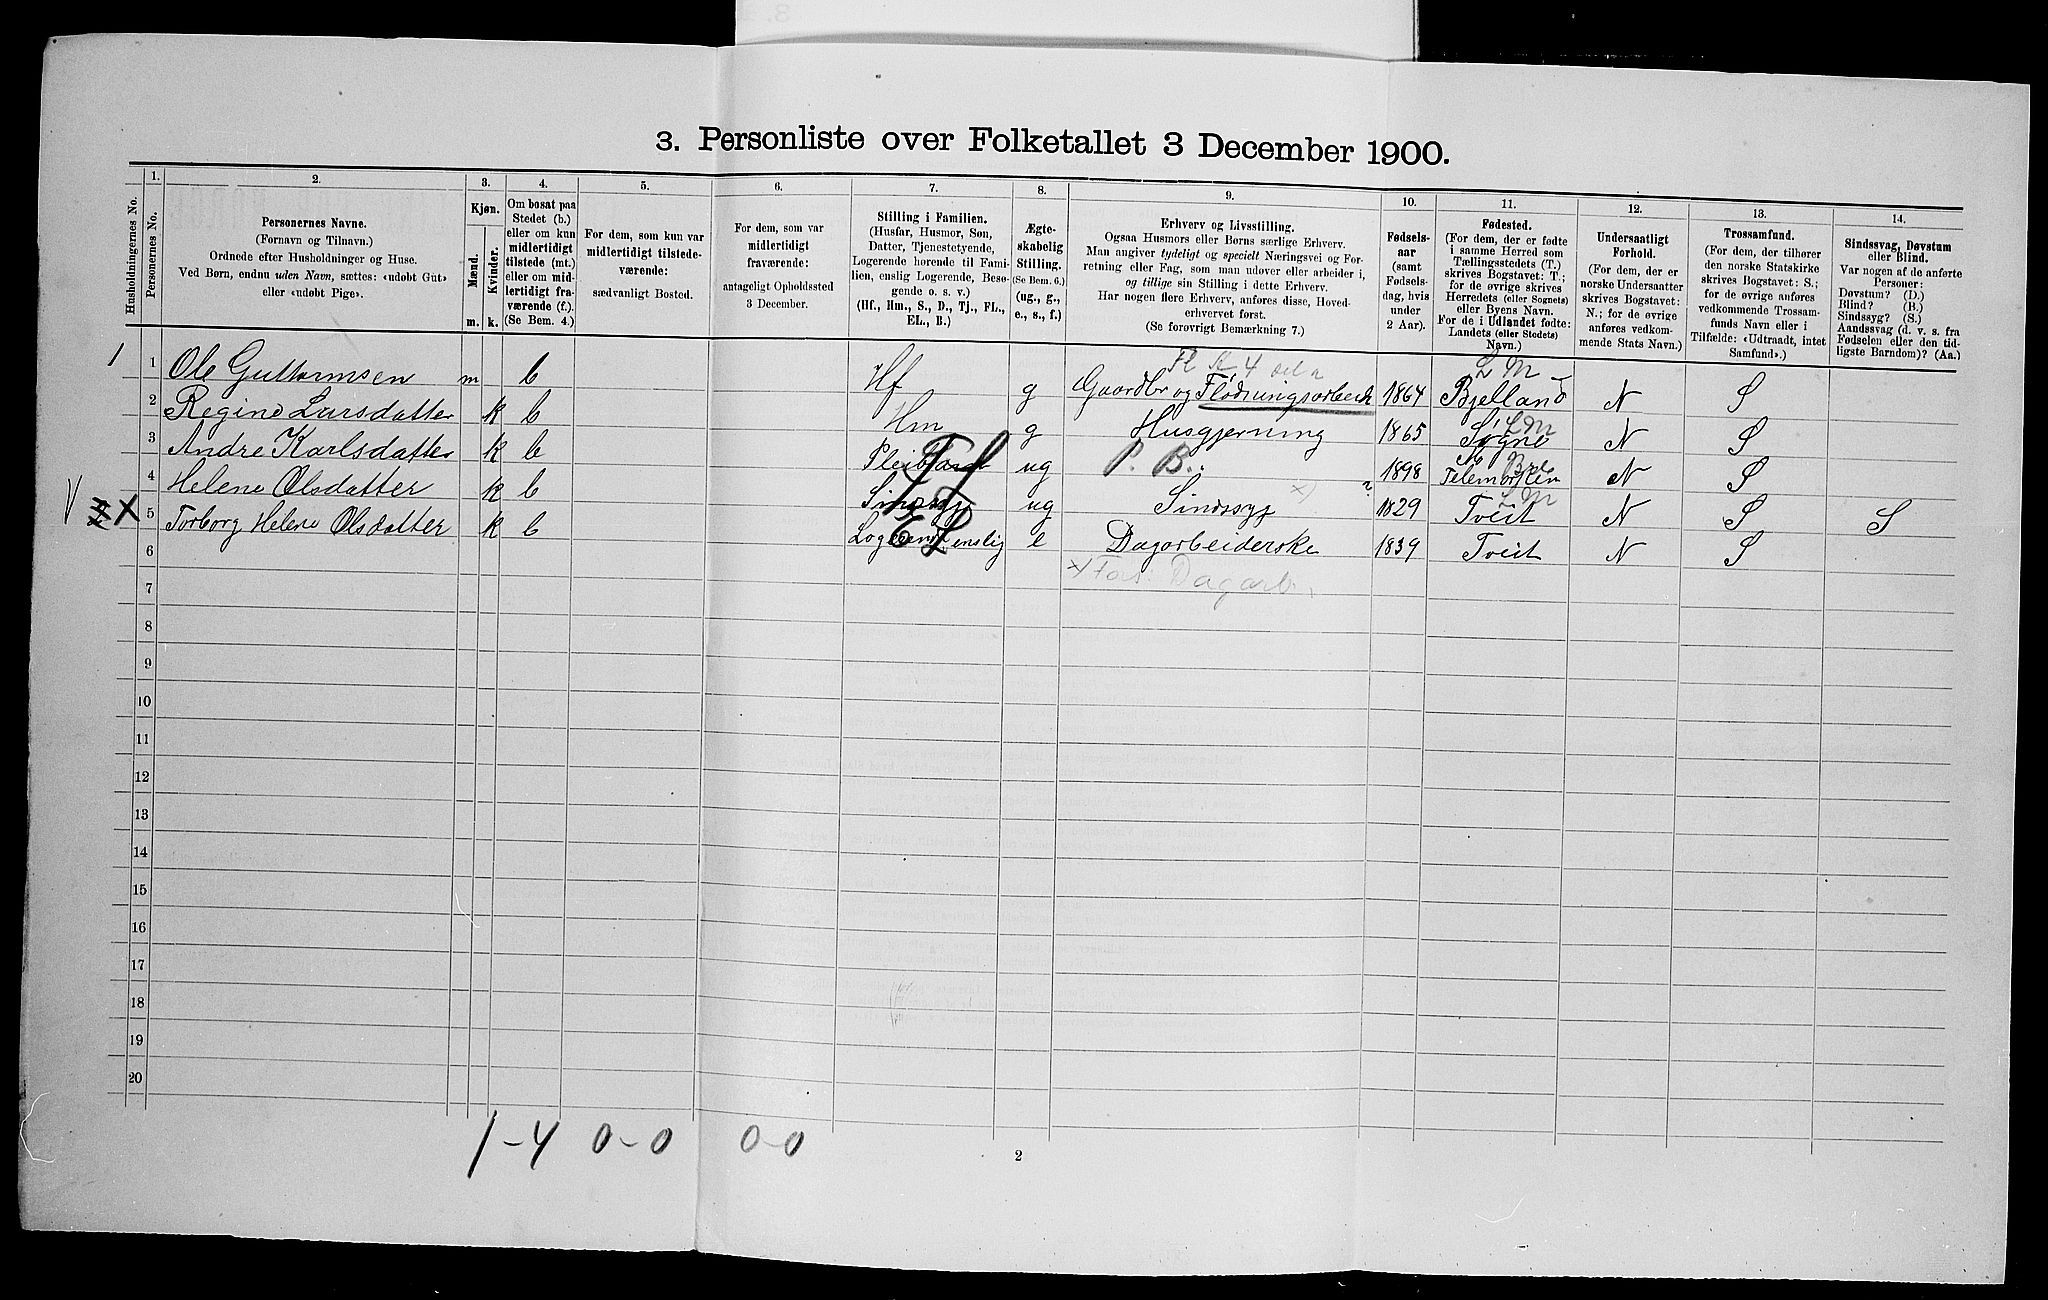 3. Personliste over Folketallet 3 December 1900.
Husholdningernes No.
1.
Personernes No.
2.
Personernes Navne.
(Fornavn og Tilnavn.)
Ordnede efter Husholdninger og Huse.
Ved Børn, endnu uden Navn, sættes: «udøbt Gut»
eller «udøbt Pige».
3.
Kjøn.
Mænd.
Kvinder.
m. k.
4.
Om bosat paa
Stedet (b.)
eller om kun
midlertidigt
tilstede (mt.)
eller om mid-
lertidigt fra-
værende (f.).
(Se Bem. 4.)
5.
For dem, som kun var
midlertidigt tilstede-
værende:
sædvanligt Bosted.
6.
For dem, som var
midlertidigt
fraværende:
antageligt Opholdssted
3 December.
7.
Stilling i Familien.
(Husfar, Husmor, Søn,
Datter, Tjenestetyende,
Logerende hørende til Fami-
lien, enslig Logerende, Besø-
gende o. s. v.)
(Hf., Hm., S., D., Tj., FL.,
EL., B.)
8.
Ægte-
skabelig
Stilling.
(Se Bem. 6.)
(ug., g.,
e., s., f.)
9.
Erhverv og Livsstilling.
Ogsaa Husmors eller Børns særlige Erhverv.
Man angiver tydeligt og specielt Næringsvei og For-
retning eller Fag, som man udover eller arbeider i,
og tillige sin Stilling i dette Erhverv.
Har nogen flere Erhverv, anføres disse, Hoved-
erhvervet først.
(Se forøvrigt Bemærkning 7.)
10.
Fødsels-
aar
(samt
Fødsels-
dag, hvis
under
2 Aar).
11.
Fødested.
(For dem, der er fødte
i samme Herred som
Tællingsstedets (T.)
skrives Bogstavet: T.;
for de øvrige skrives
Herredets (eller Sognets)
eller Byens Navn.
For de i Udlandet fødte:
Landets (eller Stedets)
Navn.)
12.
Undersaatligt
Forhold.
(For dem, der er
norske Undersaatter
skrives Bogstavet:
N.; for de øvrige
anføres vedkom-
mende Stats Navn.)
13.
Trossamfund.
(For dem, der tilhører
den norske Statskirke
skrives Bogstavet: S.;
for de øvrige anføres
vedkommende Trossam-
funds Navn eller i
Tilfælde: «Udtraadt, intet
Samfund».)
14.
Sindssvag, Døvstum
eller Blind.
Var nogen af de anførte
Personer:
Døvstum? (D.)
Blind? (B.)
Sindssyg? (S.)
Aandssvag (d. v. s. fra
Fødselen eller den tid-
ligste Barndom)? (Aa.)
L M
1 1 Ole Guttormsen m b Hf g Gaardbr og Flødningsarbeid 1864 Bjelland N S
L M
2 Regine Larsdatter k b Hm g Husgjerning 1865 Søgne N S
3 Andre Karlsdatter k b Pleibarn ug P. B. 1898 Telemarken N S
L M
4 Helene Olsdatter k b Sindssyg ug Sindssyg x) ? 1829 Tveit N S S
5 Torborg Helene Olsdatter k b Logerende enslig EL e Dagarbeiderske 1839 Tveit N S
6
x) Fors. Dagarb.
7
8
9
10
11
12
13
14
15
16
17
18
19
20
1-4 0-0 0-0
2